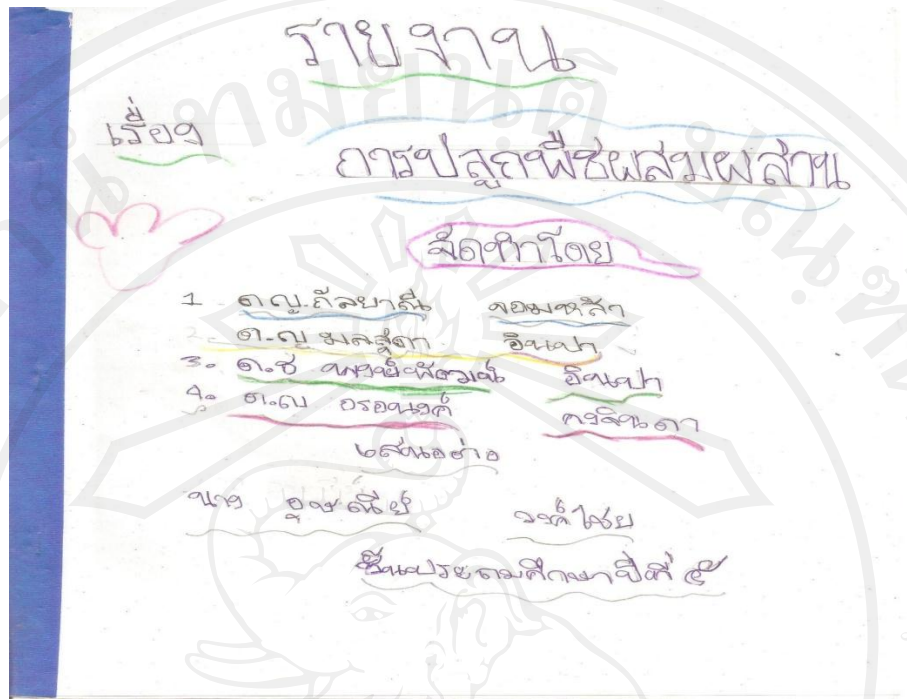 รายงาน
เรื่อง
การปลูกพืชผสมผสาน
จัดทำโดย
1 ด.ญ.กัลยาณี จอมหล้า
2 ด.ญ มลสุดา อินเปา
3. ด.ช พงษ์พัฒน์ อินเปา
4. ด.ญ อรอนงค์ คงจินดา
เสนอต่อ
นาง อุษณีย์ วงค์ไชย
ชั้นประถมศึกษาปีที่ ๕